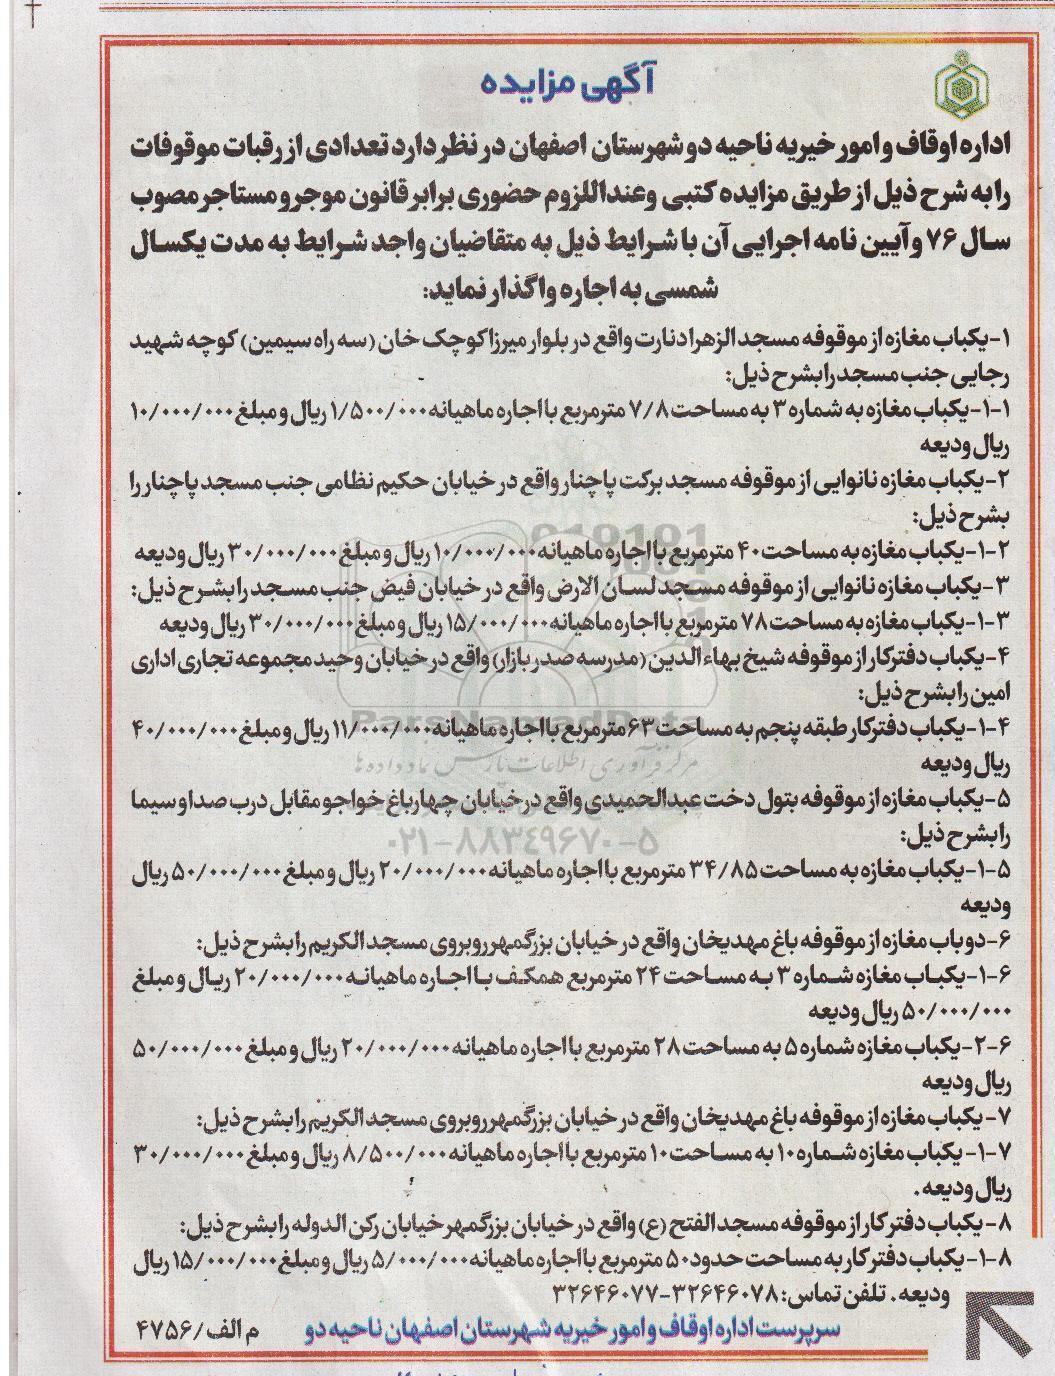 آگهی مزایده
اداره اوقاف و امور خیریه ناحیه دو شهرستان اصفهان در نظر دارد تعدادی از رقبات موقوفات
را به شرح ذیل از طریق مزایده کتبی وعنداللزوم حضوری برابر قانون موجر و مستاجر مصوب
سال ۷۶ و آیین نامه اجرایی آن با شرایط ذیل به متقاضیان واجد شرایط به مدت یکسال
شمسی به اجاره واگذار نماید:
۱-یکباب مغازه از موقوفه مسجد الزهرا دنارت واقع در بلوار میرزا کوچک خان (سه راه سیمین) کوچه شهید
رجایی جنب مسجد را بشرح ذیل:
۱-۱-یکباب مغازه به شماره ۳ به مساحت ۷/۸ مترمربع با اجاره ماهیانه ۱/۵۰۰/۰۰۰ ریال و مبلغ ۱۰/۰۰۰/۰۰۰
ریال ودیعه
۲-یکباب مغازه نانوایی از موقوفه مسجد برکت پاچنار واقع در خیابان حکیم نظامی جنب مسجد پاچنار را
بشرح ذیل:
۱-۲-یکباب مغازه به مساحت ۴۰ مترمربع با اجاره ماهیانه ۱۰/۰۰۰/۰۰۰ ریال و مبلغ ۳۰/۰۰۰/۰۰۰ ریال ودیعه
۳-یکباب مغازه نانوایی از موقوفه مسجد لسان الارض واقع در خیابان فیض جنب مسجد را بشرح ذیل:
۱-۳-یکباب مغازه به مساحت ۷۸ مترمربع با اجاره ماهیانه ۱۵/۰۰۰/۰۰۰ ریال و مبلغ ۳۰/۰۰۰/۰۰۰ ریال ودیعه
۴-یکباب دفتر کار از موقوفه شیخ بهاء الدین (مدرسه صدر بازار) واقع در خیابان وحید مجموعه تجاری اداری
امین را بشرح ذیل:
۱-۴-یکباب دفتر کار طبقه پنجم به مساحت ۶۳ مترمربع با اجاره ماهیانه ۱۱/۰۰۰/۰۰۰ ریال و مبلغ ۴۰/۰۰۰/۰۰۰
ParsNamadData
ریال ودیعه
۵-یکباب مغازه از موقوفه بتول دخت عبدالحمیدی واقع در خیابان چهارباغ خواجو مقابل درب صدا و سیما
را بشرح ذیل:
۰۲۱-۸۸۳۴۹۶۷۰-۵
۱-۵-یکباب مغازه به مساحت ۳۴/۸۵ مترمربع با اجاره ماهیانه ۲۰/۰۰۰/۰۰۰ ریال و مبلغ ۵۰/۰۰۰/۰۰۰ ریال
ودیعه
۶-دو باب مغازه از موقوفه باغ مهدیخان واقع در خیابان بزرگمهر روبروی مسجد الکریم را بشرح ذیل:
۱-۶-یکباب مغازه شماره ۳ به مساحت ۲۴ مترمربع همکف با اجاره ماهیانه ۲۰/۰۰۰/۰۰۰ ریال و مبلغ
۵۰/۰۰۰/۰۰۰ ریال ودیعه
۲-۶-یکباب مغازه شماره ۵ به مساحت ۲۸ مترمربع با اجاره ماهیانه ۲۰/۰۰۰/۰۰۰ ریال و مبلغ ۵۰/۰۰۰/۰۰۰
ریال ودیعه
۷-یکباب مغازه از موقوفه باغ مهدیخان واقع در خیابان بزرگمهر روبروی مسجد الکریم را بشرح ذیل:
۱-۷- یکباب مغازه شماره ۱۰ به مساحت ۱۰ مترمربع با اجاره ماهیانه ۸/۵۰۰/۰۰۰ ریال و مبلغ ۳۰/۰۰۰/۰۰۰
ریال ودیعه.
۸-یکباب دفتر کار از موقوفه مسجد الفتح (ع) واقع در خیابان بزرگمهر خیابان رکن الدوله را بشرح ذیل:
۱-۸-یکباب دفتر کار به مساحت حدود ۵۰ مترمربع با اجاره ماهیانه ۵/۰۰۰/۰۰۰ ریال و مبلغ ۱۵/۰۰۰/۰۰۰ ریال
ودیعه. تلفن تماس: ۳۲۶۴۶۰۷۸-۳۲۶۴۶۰۷۷
سرپرست اداره اوقاف و امور خیریه شهرستان اصفهان ناحیه دو
م الف/۴۷۵۶